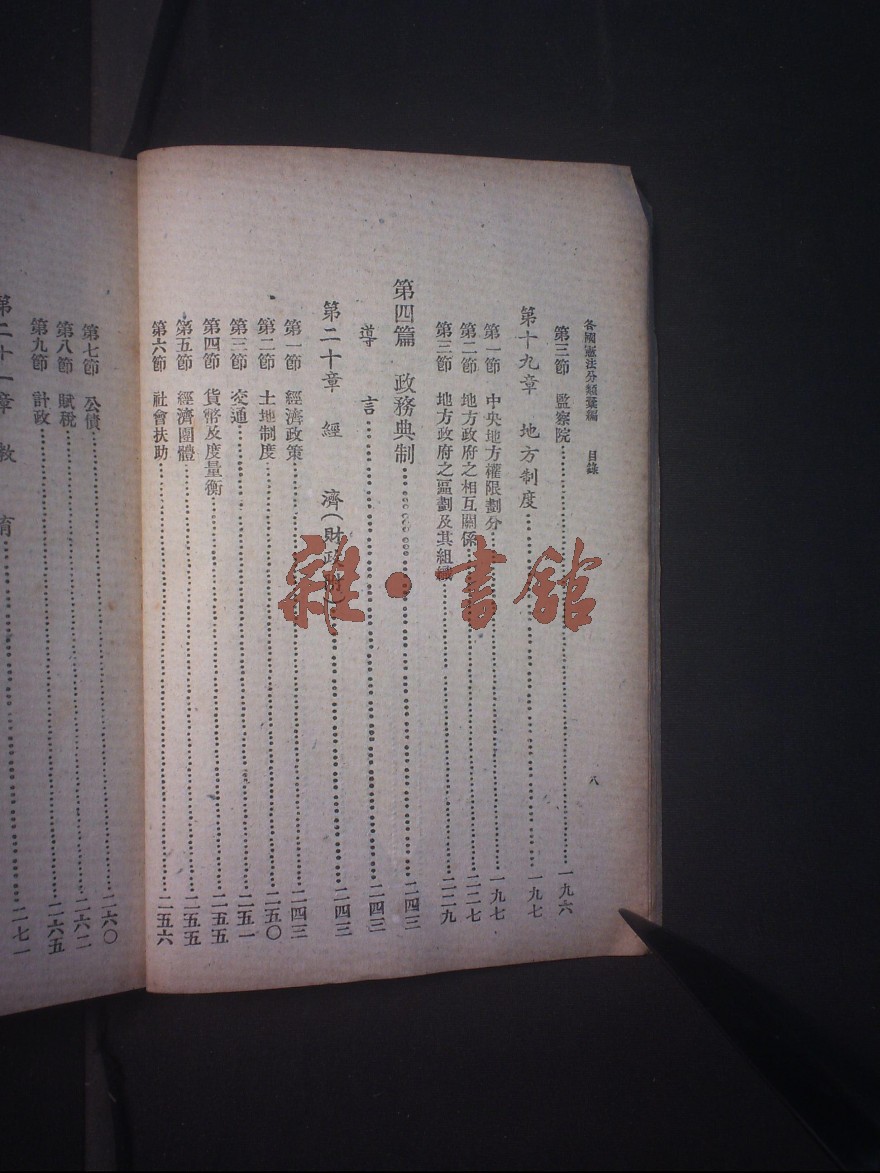 各國憲法分類彙編　目錄　八
第三節　監察院……一九六
第十九章　地方制度……一九七
第一節　中央地方權限劃分……一九七
第二節　地方政府之相互關係……二二七
第三節　地方政府之區劃及其組織……二二九
第四篇　政務典制……二四三
導言……二四三
第二十章　經濟（財政附）……二四三
第一節　經濟政策……二四三
第二節　土地制度……二五〇
第三節　交通……二五一
第四節　貨幣及度量衡……二五五
第五節　經濟團體……二五五
第六節　社會扶助……二五六
第七節　公債……二六〇
第八節　賦稅……二六二
第九節　計政……二六五
第二十一章　教育……二七一
雜·書館